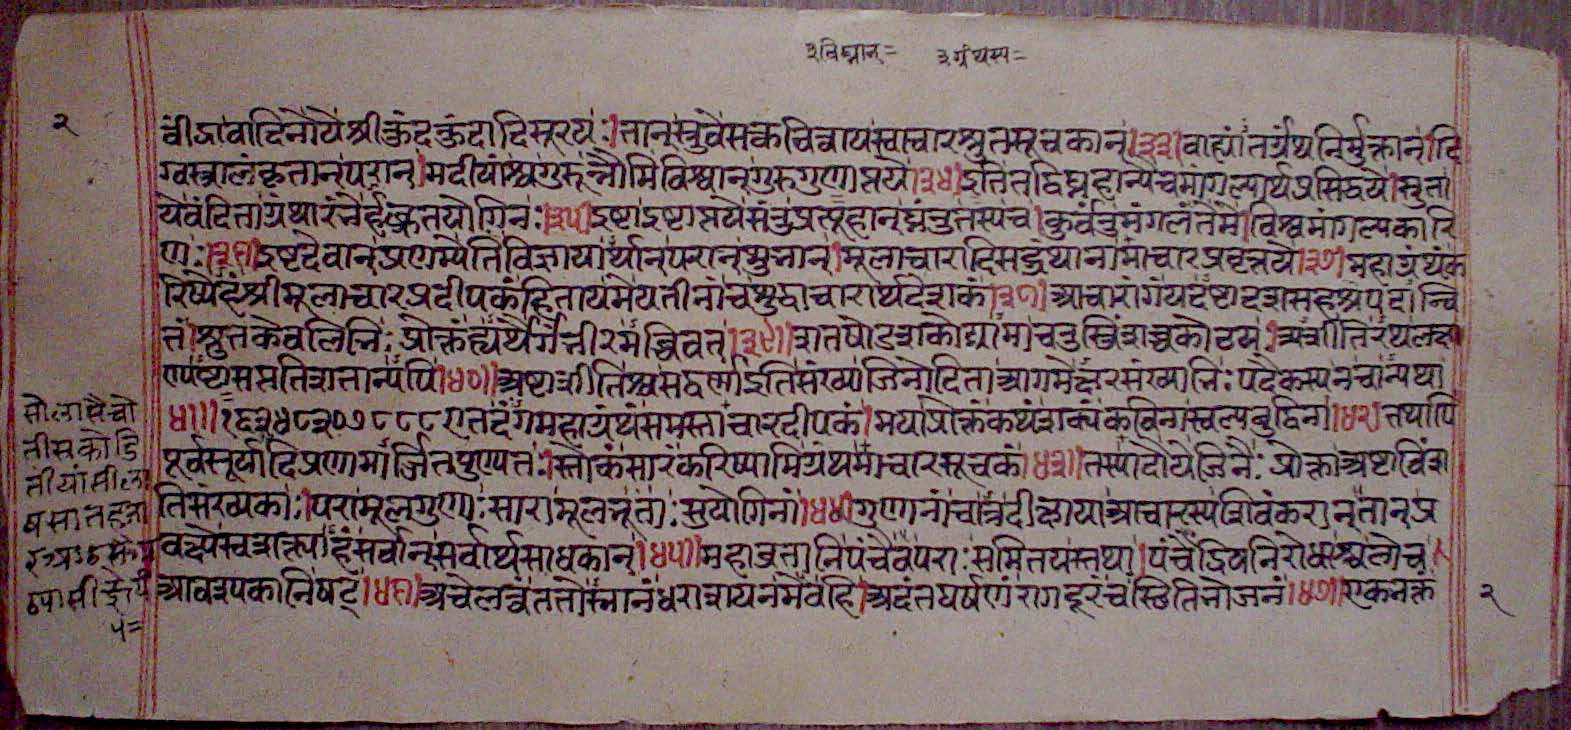 ३विघ्नान्= ३ग्रंथस्य=
२
वीजावादिनोये श्रीकुंदकुंदादिसूरयः।तान्स्तुवेसकवित्वायस्वाचारश्रुतसूचकान्।३३।वाह्यांतर्ग्रंथनिर्मुक्तान्दि
ग्वस्त्रालंकृतान्परान्।मदीयांश्चगुरून्नौमिविश्वान्गुरुगुणाप्तये।३४।इतितद्विघ्नहान्यैचमांगल्यार्थप्रसिद्धये।स्तुता
येवंदिताग्रंथारंभेर्हछ्रुतयोगिनः।३५।इष्टाइष्टाप्तयेसंतुप्रत्यूहान्घ्नंतुतस्यच।कुर्वंतुमंगलंतेमेविश्वमांगल्यकारि
णः।३६।इष्टदेवान्प्रणम्येतिविज्ञायार्थान्परान्शुभान्।मूलाचारादिसद्ग्रंथानामाचारप्रवृत्तये।३७।महाग्रंथंक
रिष्येहंश्रीमूलाचारप्रदीपकंहितायमेयतीनांचशुद्धाचारार्थदेशकं।३८।आचारांगंयदष्टादशसहस्रपदान्वि
तं।श्रुतकेवलिभिःप्रोक्तंह्यर्थैर्गंभीरमब्धिवत्।३९।शतषोडशकोट्यामाचतुस्त्रिंशच्चकोटयः।त्र्यशीतिरथलक्षा
ण्यष्टासप्ततिशतान्यपि।४०।अष्टाशीतिश्चसद्वर्णाइतिसंख्याजिनोदिताआगमेक्षरसंख्याभिःपदैकस्यनचान्यथा
४१।१६३४८३०७८८८एतदंगमहाग्रंथंसमस्ताचारदीपकं।मयाप्रोक्तंकथंशक्यंकविनास्वल्पबुद्धिना।४२।तथापि
पूर्वसूर्यादिप्रणामार्जितपुण्यतः।स्तोकंसारंकरिष्यामिग्रंथमाचारसूचकं।४३।तस्यादौयेजिनैःप्रोक्ताअष्टाविंश
तिसंख्यकाः।परामूलगुणाःसारामूलभूताःसुयोगिनां।४४।गुणानांचात्रदीक्षायाआचारस्यशिवंकरान्तान्प्र
वक्ष्येस्वशक्त्याहंसर्वान्सर्वार्थसाधकान्।४५।महाव्रतानिपंचैवपराःसमितयस्तथा।पंचेंद्रियनिरोधाश्चलोच
आवश्यकानिषट्।४६।अचेलत्वंततोस्नानंधराशयनमेवहि।अदंतघर्षणंरागदूरंचस्थितिभोजनं।४७।एकभक्तं
सोलासैचो
तीसकोडि
२